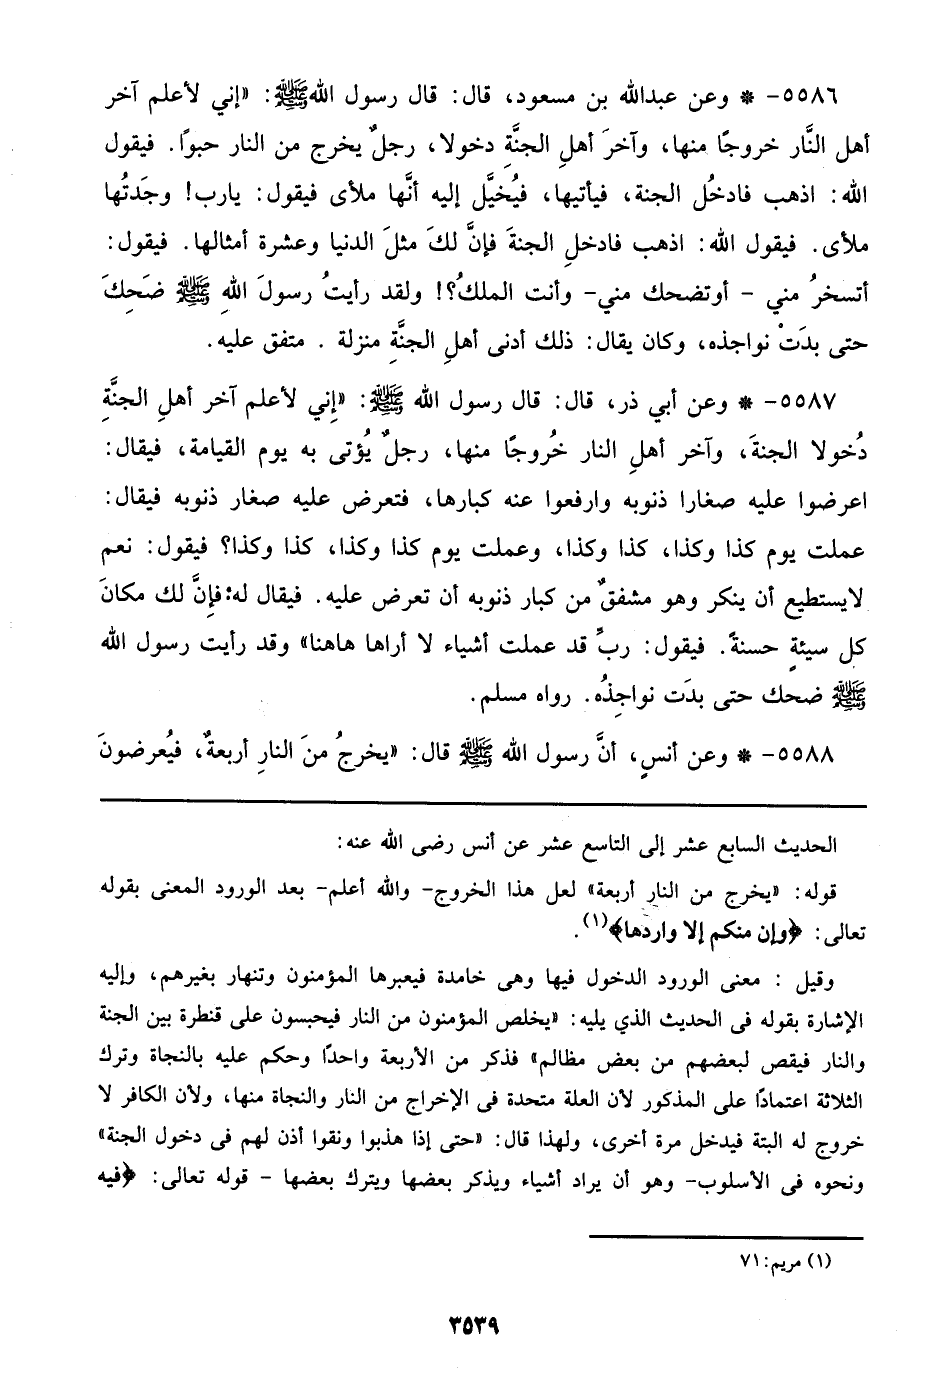 ٥٥٨٦- * وعن عبدالله بن مسعود، قال: قال رسول الله ﷺ: «إني لأعلم آخر
أهل النَّار خروجًا منها، وآخرَ أهلِ الجنَّةِ دخولا، رجلٌ يخرج من النار حبوًا. فيقول
الله: اذهب فادخُل الجنة، فيأتيها، فيُخيَّل إليه أنَّها ملأى فيقول: يارب! وجَدتُها
ملأى. فيقول الله: اذهب فادخلِ الجنةَ فإنَّ لكَ مثلَ الدنيا وعشرة أمثالها. فيقول:
أتسخرُ مني - أوتضحك مني- وأنت الملكُ؟! ولقد رأيتُ رسولَ اللهِ ﷺ ضَحِكَ
حتى بدَتْ نواجذه، وكان يقال: ذلك أدنى أهلِ الجنَّةِ منزلة . متفق عليه.
٥٥٨٧- * وعن أبي ذر، قال: قال رسول الله ﷺ: «إِني لأعلم آخر أهلِ الجنَّةِ
دُخولا الجنةَ، وآخر أهلِ النار خُروجًا منها، رجلٌ يُؤتى به يوم القيامة، فيقال:
اعرضوا عليه صغارا ذنوبه وارفعوا عنه كبارها، فتعرض عليه صغار ذنوبه فيقال:
عملت يوم كذا وكذا، كذا وكذا، وعملت يوم كذا وكذا، كذا وكذا؟ فيقول: نعم
لايستطيع أن ينكر وهو مشفقٌ من كبار ذنوبه أن تعرض عليه. فيقال له: فإنَّ لك مكانَ
كل سيئةٍ حسنةً. فيقول: ربِّ قد عملت أشياء لا أراها هاهنا» وقد رأيت رسول الله
ﷺ ضحك حتى بدَت نواجذُه. رواه مسلم.
٥٥٨٨- * وعن أنسٍ، أنَّ رسول الله ﷺ قال: «يخرجُ منَ النارِ أربعةٌ، فيُعرضونَ
الحديث السابع عشر إلى التاسع عشر عن أنس رضى الله عنه:
قوله: «يخرج من النار أربعة» لعل هذا الخروج- والله أعلم- بعد الورود المعنى بقوله
تعالى: ﴿وإن منكم إلا واردها﴾(١).
وقيل : معنى الورود الدخول فيها وهى خامدة فيعبرها المؤمنون وتنهار بغيرهم، وإليه
الإشارة بقوله فى الحديث الذي يليه: «يخلص المؤمنون من النار فيحبسون على قنطرة بين الجنة
والنار فيقص لبعضهم من بعض مظالم» فذكر من الأربعة واحدًا وحكم عليه بالنجاة وترك
الثلاثة اعتمادًا على المذكور لأن العلة متحدة فى الإخراج من النار والنجاة منها، ولأن الكافر لا
خروج له البتة فيدخل مرة أخرى، ولهذا قال: «حتى إذا هذبوا ونقوا أذن لهم فى دخول الجنة»
ونحوه فى الأسلوب- وهو أن يراد أشياء ويذكر بعضها ويترك بعضها - قوله تعالى: ﴿فيه
(١) مريم: ٧١
٣٥٣٩